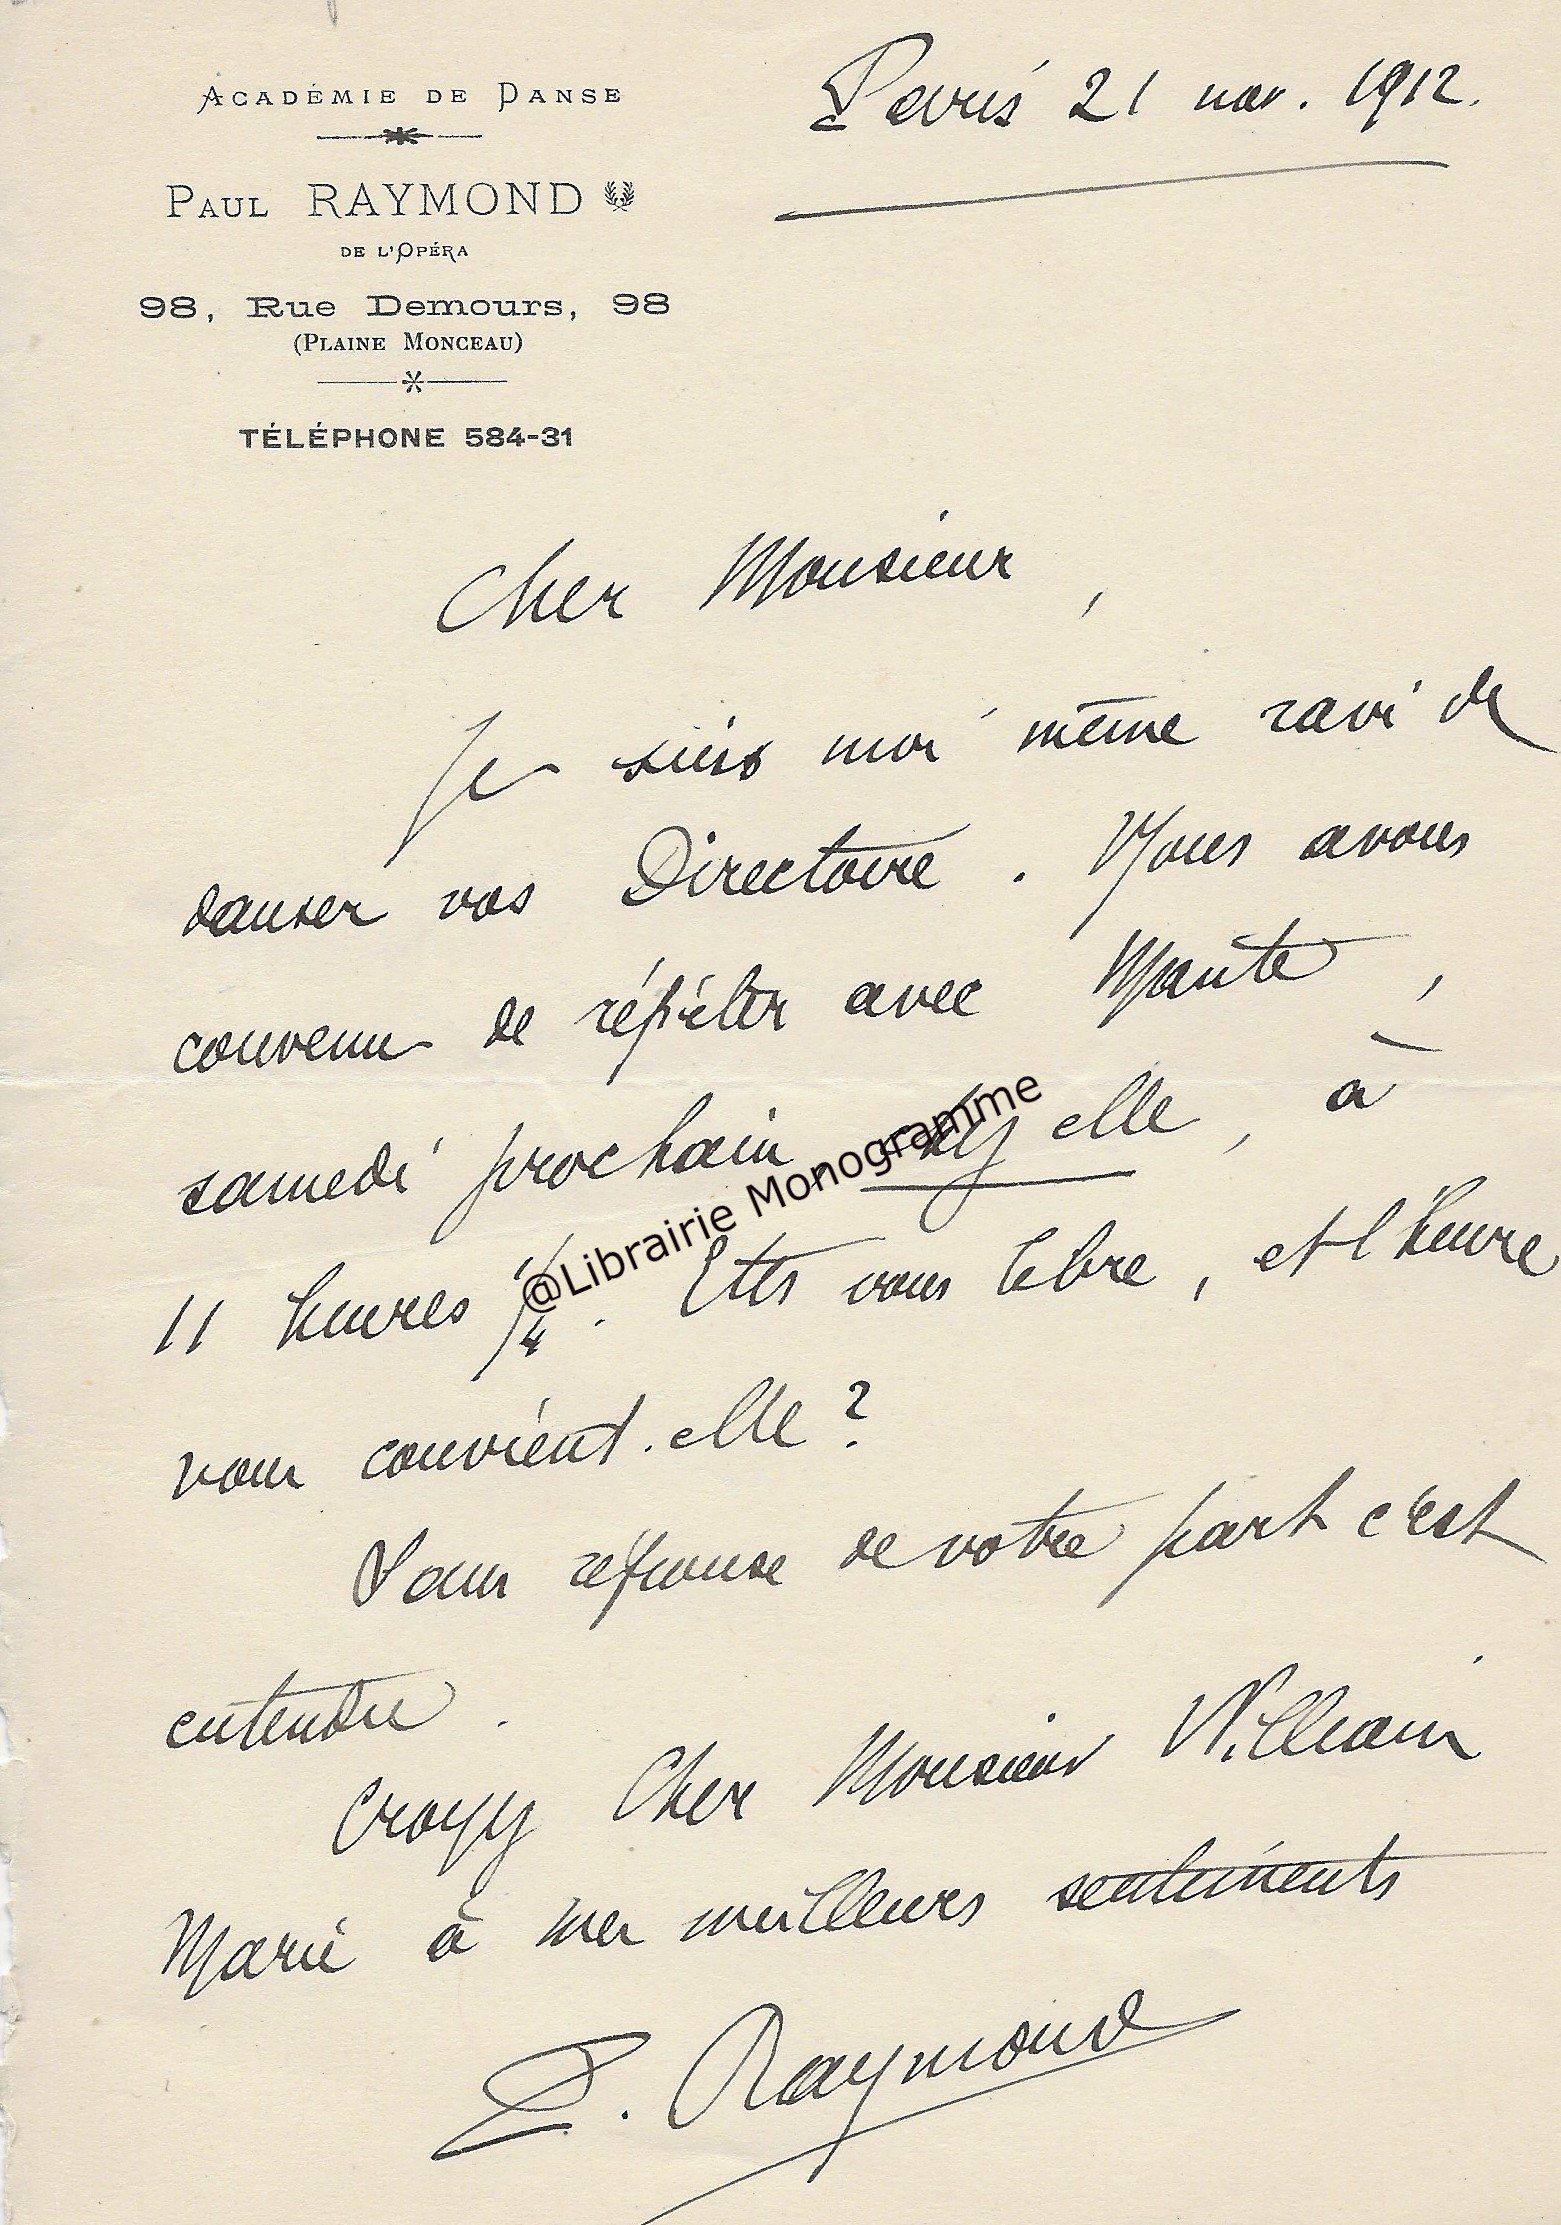 ACADÉMIE DE DANSE
PAUL RAYMOND
DE L'OPÉRA
98, Rue Demours, 98
(PLAINE MONCEAU)
TÉLÉPHONE 584-31
Paris 21 nov. 1912.
Cher Monsieur,
Je suis moi même ravi de
danser vos Directoire. Nous avons
convenu de répéter avec Mante,
samedi prochain, chez elle, à
11 heures 1/4. Etes vous libre, et l'heure
vous convient-elle ?
Sans réponse de votre part c'est
entendu.
Croyez Cher Monsieur William
Marie à mes meilleurs sentiments
P. Raymond
@Librairie Monogramme